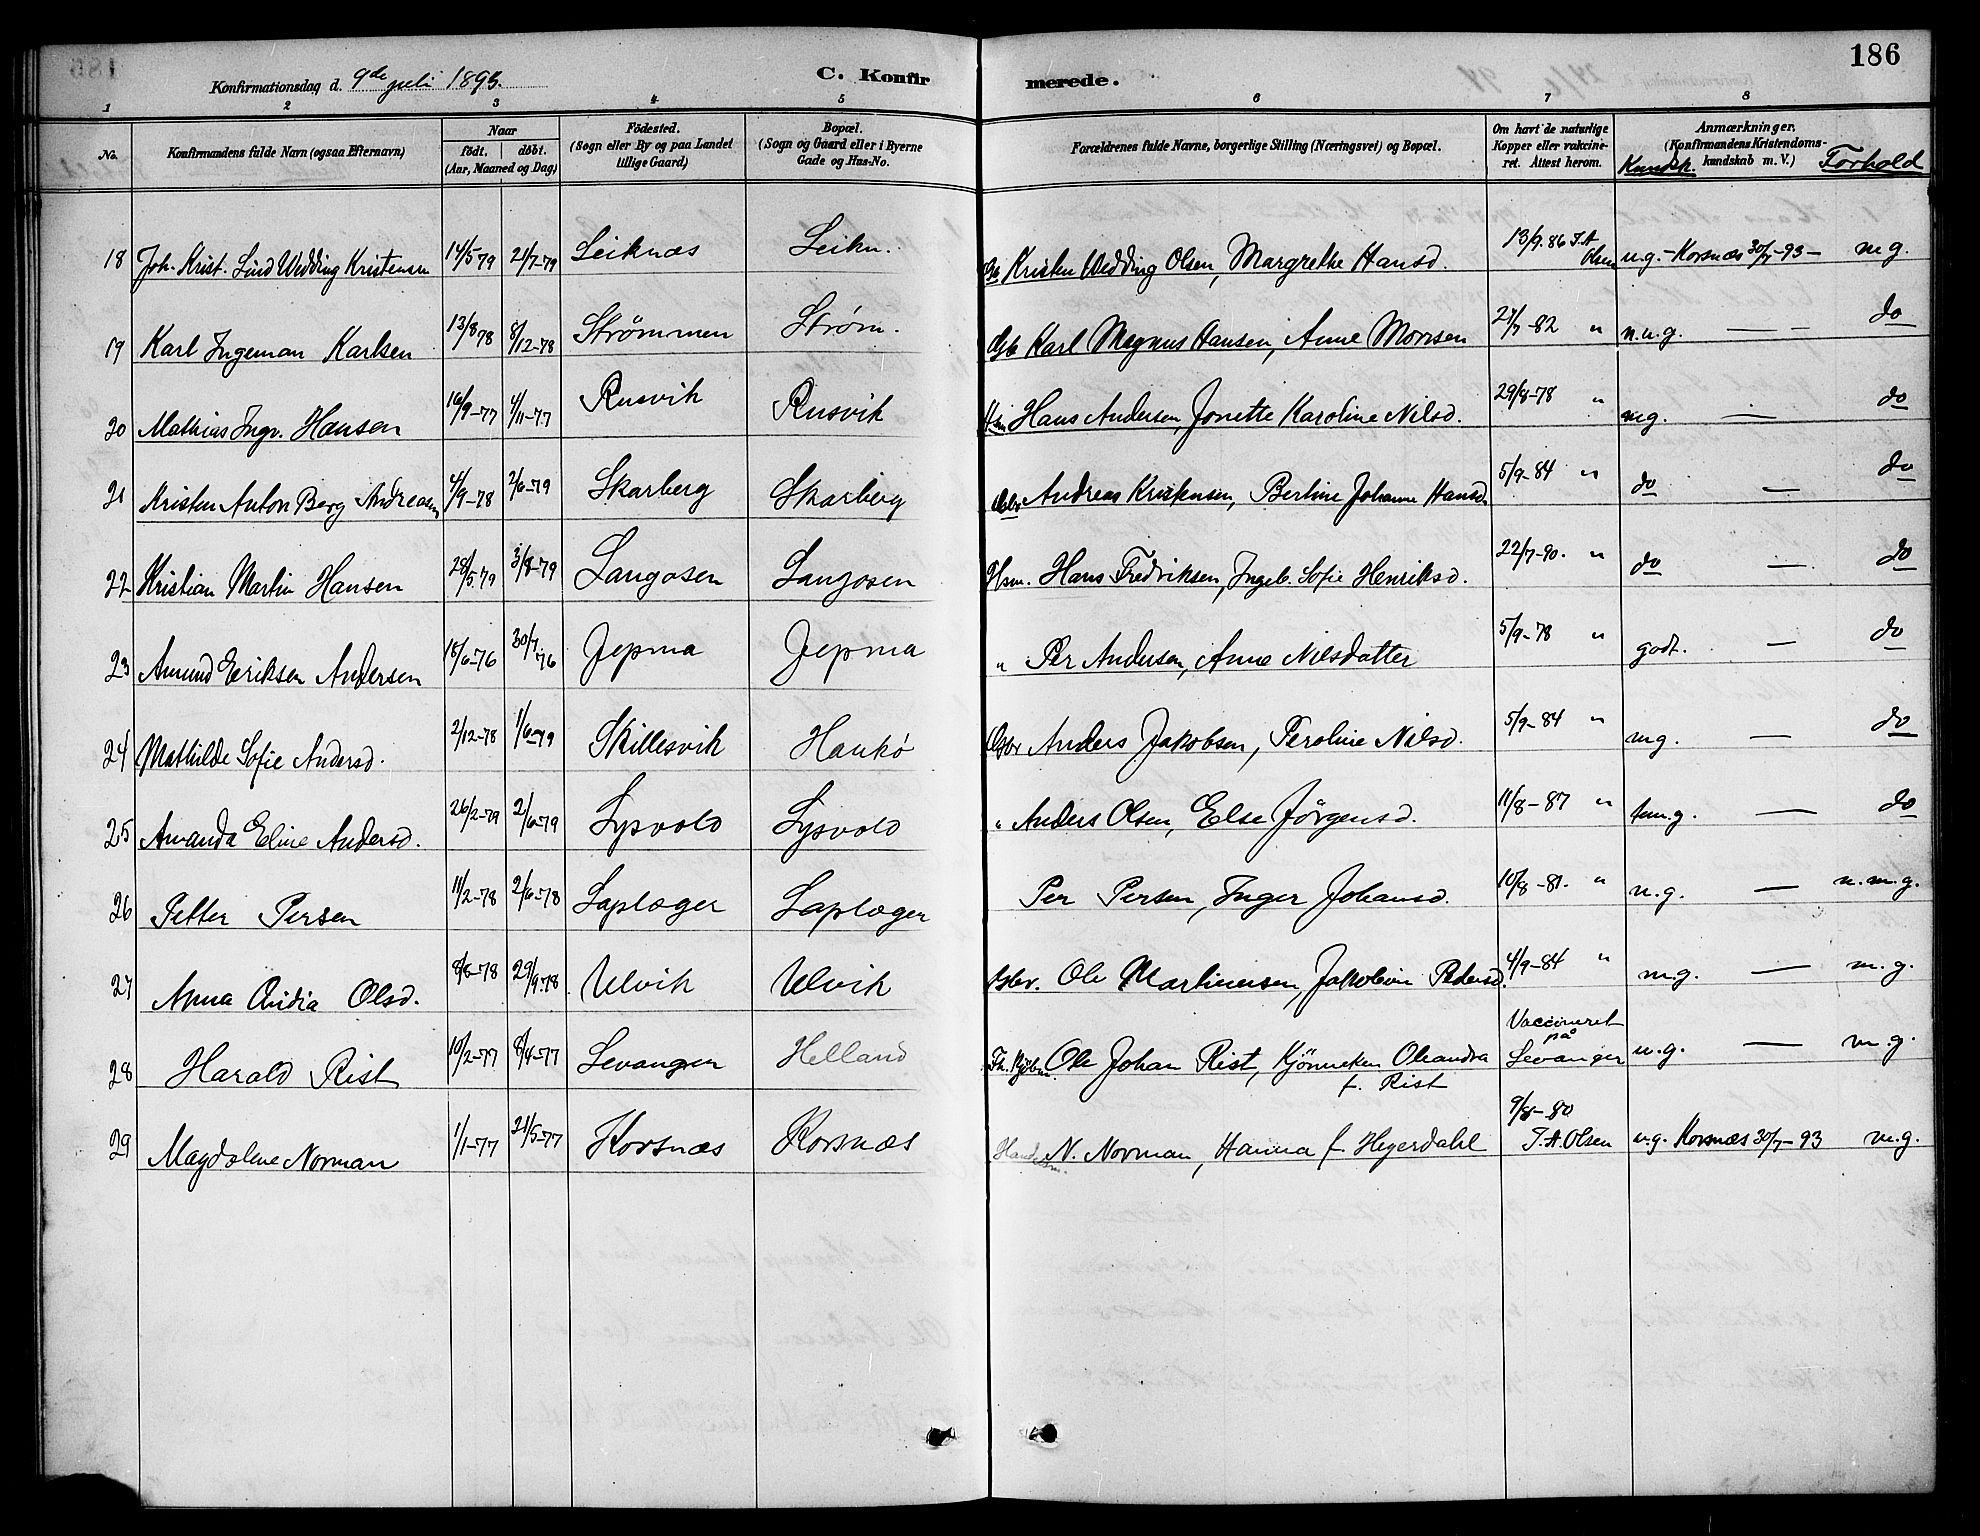 186
Konfirmationsdag d. 9de juli 1893.
C. Konfirmerede.
1 2 3 4 5 6 7 8
No. Konfirmandens fulde Navn (ogsaa Efternavn) Naar födt. döbt. (Aar, Maaned og Dag) Födested. (Sogn eller By og paa Landet tillige Gaard) Bopæl. (Sogn og Gaard eller i Byerne Gade og Hus-No. Forældrenes fulde Navne, borgerlige Stilling (Næringsvei) og Bopæl. Om havt de naturlige Kopper eller vakcineret. Attest herom. Anmærkninger. (Konfirmandens Kristendomskundskab m. V.) Kundsk. Forhold
18 Joh. Krist. Lind Wedding Kristensen 14/5 79 21/7-79 Leiknæs Leikn. Kristen Wedding Olsen, Margrethe Hansd. 13/9. 86 T.A. Olsen m.g. - Korsnæs 30/7-93 - m.g.
19 Karl Ingeman Karlsen 13/8 78 8/12-78 Strømmen Strøm. Karl Magnus Hansen, Anne Monsen 21/7-82 " n.u.g. — do
20 Mathias Ingv. Hansen 16/9-77 4/11-77 Rusvik Rusvik Hsm Hans Andersen, Jonette Karoline Nilsd. 29/8-78 " mg. — do
21 Kristen Anton Berg Andreasen 4/9-78 2/6-79 Skarberg Skarberg Gbr Andreas Kristensen, Bertine Johanne Hansd. 5/9-84 " do — do
22 Kristian Martin Hansen 28/5 79 3/8-79 Langosen Langosen Hsm. Hans Fredriksen, Ingeb. Sofie Henriksd. 22/7-90. " do — do
23 Amund Eriksen Andersen 18/6-76 30/7 76 Jepma Jepma " Per Andersen, Anne Nilsdatter 5/9-78 " godt. — do
24 Mathilde Sofie Andersd. 2/12-78 1/6-79 Skillesvik Hankö Gbr Anders Jakobsen, Peroline Nilsd. 5/9-84 " mg. — do
25 Amanda Eline Andersd. 26/2-79 2/6-79 Lysvold Lysvold " Anders Olsen, Else Jörgensd. 11/8-87 " tem.g. — do
26 Petter Persen 11/2-78 2/6-78 Laplæger Laplæger Per Persen, Inger Johansd. 10/8-81. " n.g. — n.m.g.
27 Anna Ovidia Olsd. 8/8-78 29/9-78 Ulvik Ulvik Gbr. Ole Martinusen, Jakobine Pedersd. 4/9-84 " m.g. — m.g.
28 Harald Rist 10/2-77 8/4-77 Levanger Helland Fh. Kjöbm. Ole Johan Rist, Kjönneken Oleandra f. Rist Vaccineret på Levanger m.g. — m.g.
29 Magdalene Norman 1/1-77 21/5-77 Korsnæs Korsnæs Handelsm. N. Norman, Hanna f. Heyerdahl 9/8-80 T.A. Olsen m.g. Korsnæs 30/7-93 m.g.